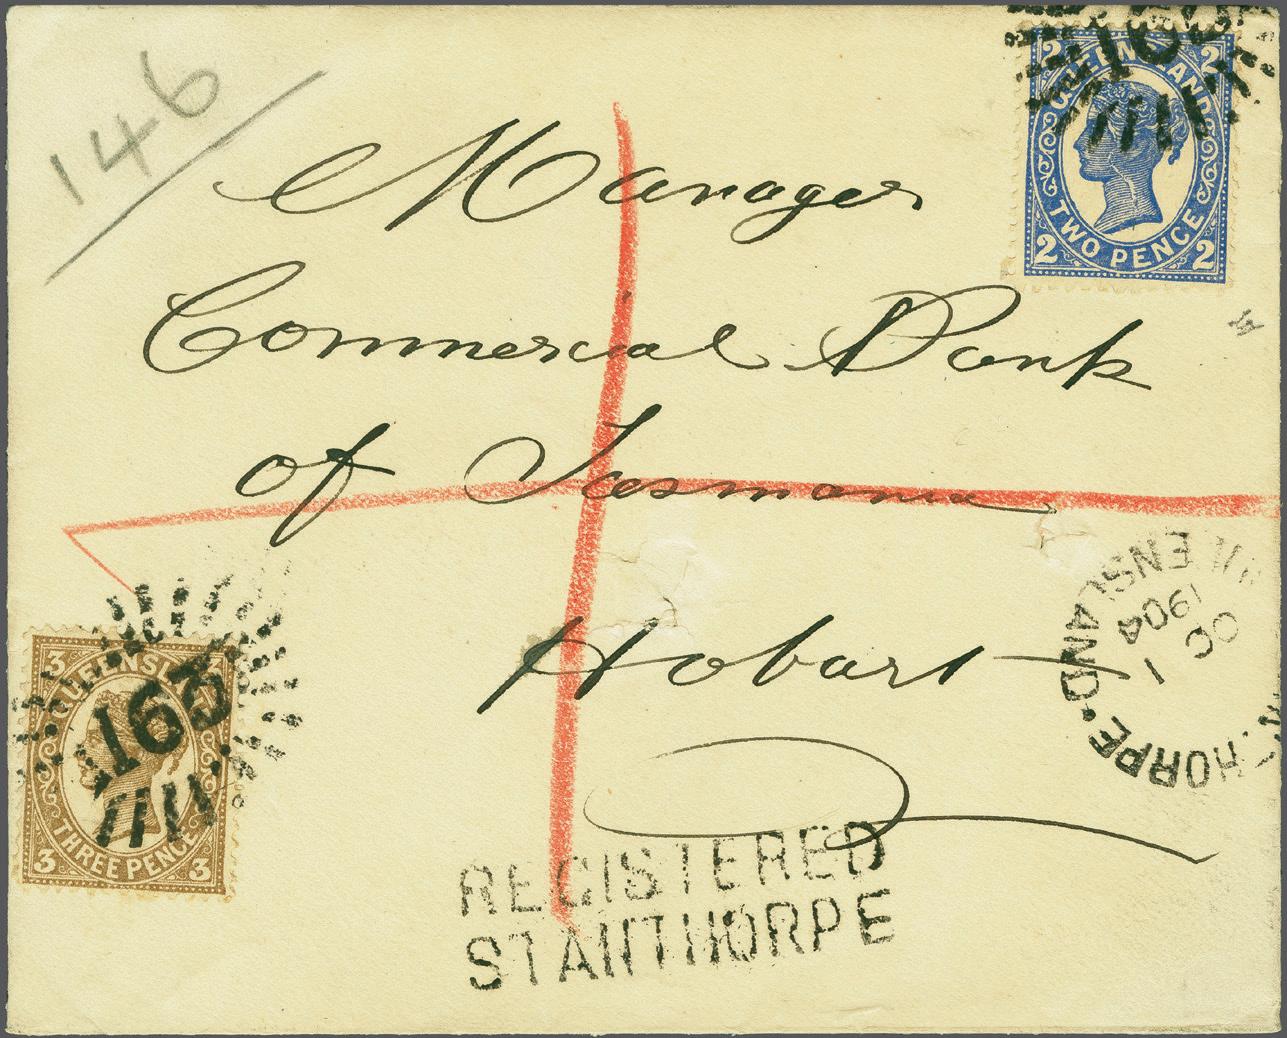 146
163
2 QUEENSLAND 2
2 TWO PENCE 2
Manager
Commercial Bank
of Tasmania
Hobart
STANTHORPE • QUEENSLAND
1
1904
3 QUEENSLAND 3
163
3 THREE PENCE 3
REGISTERED
STANTHORPE